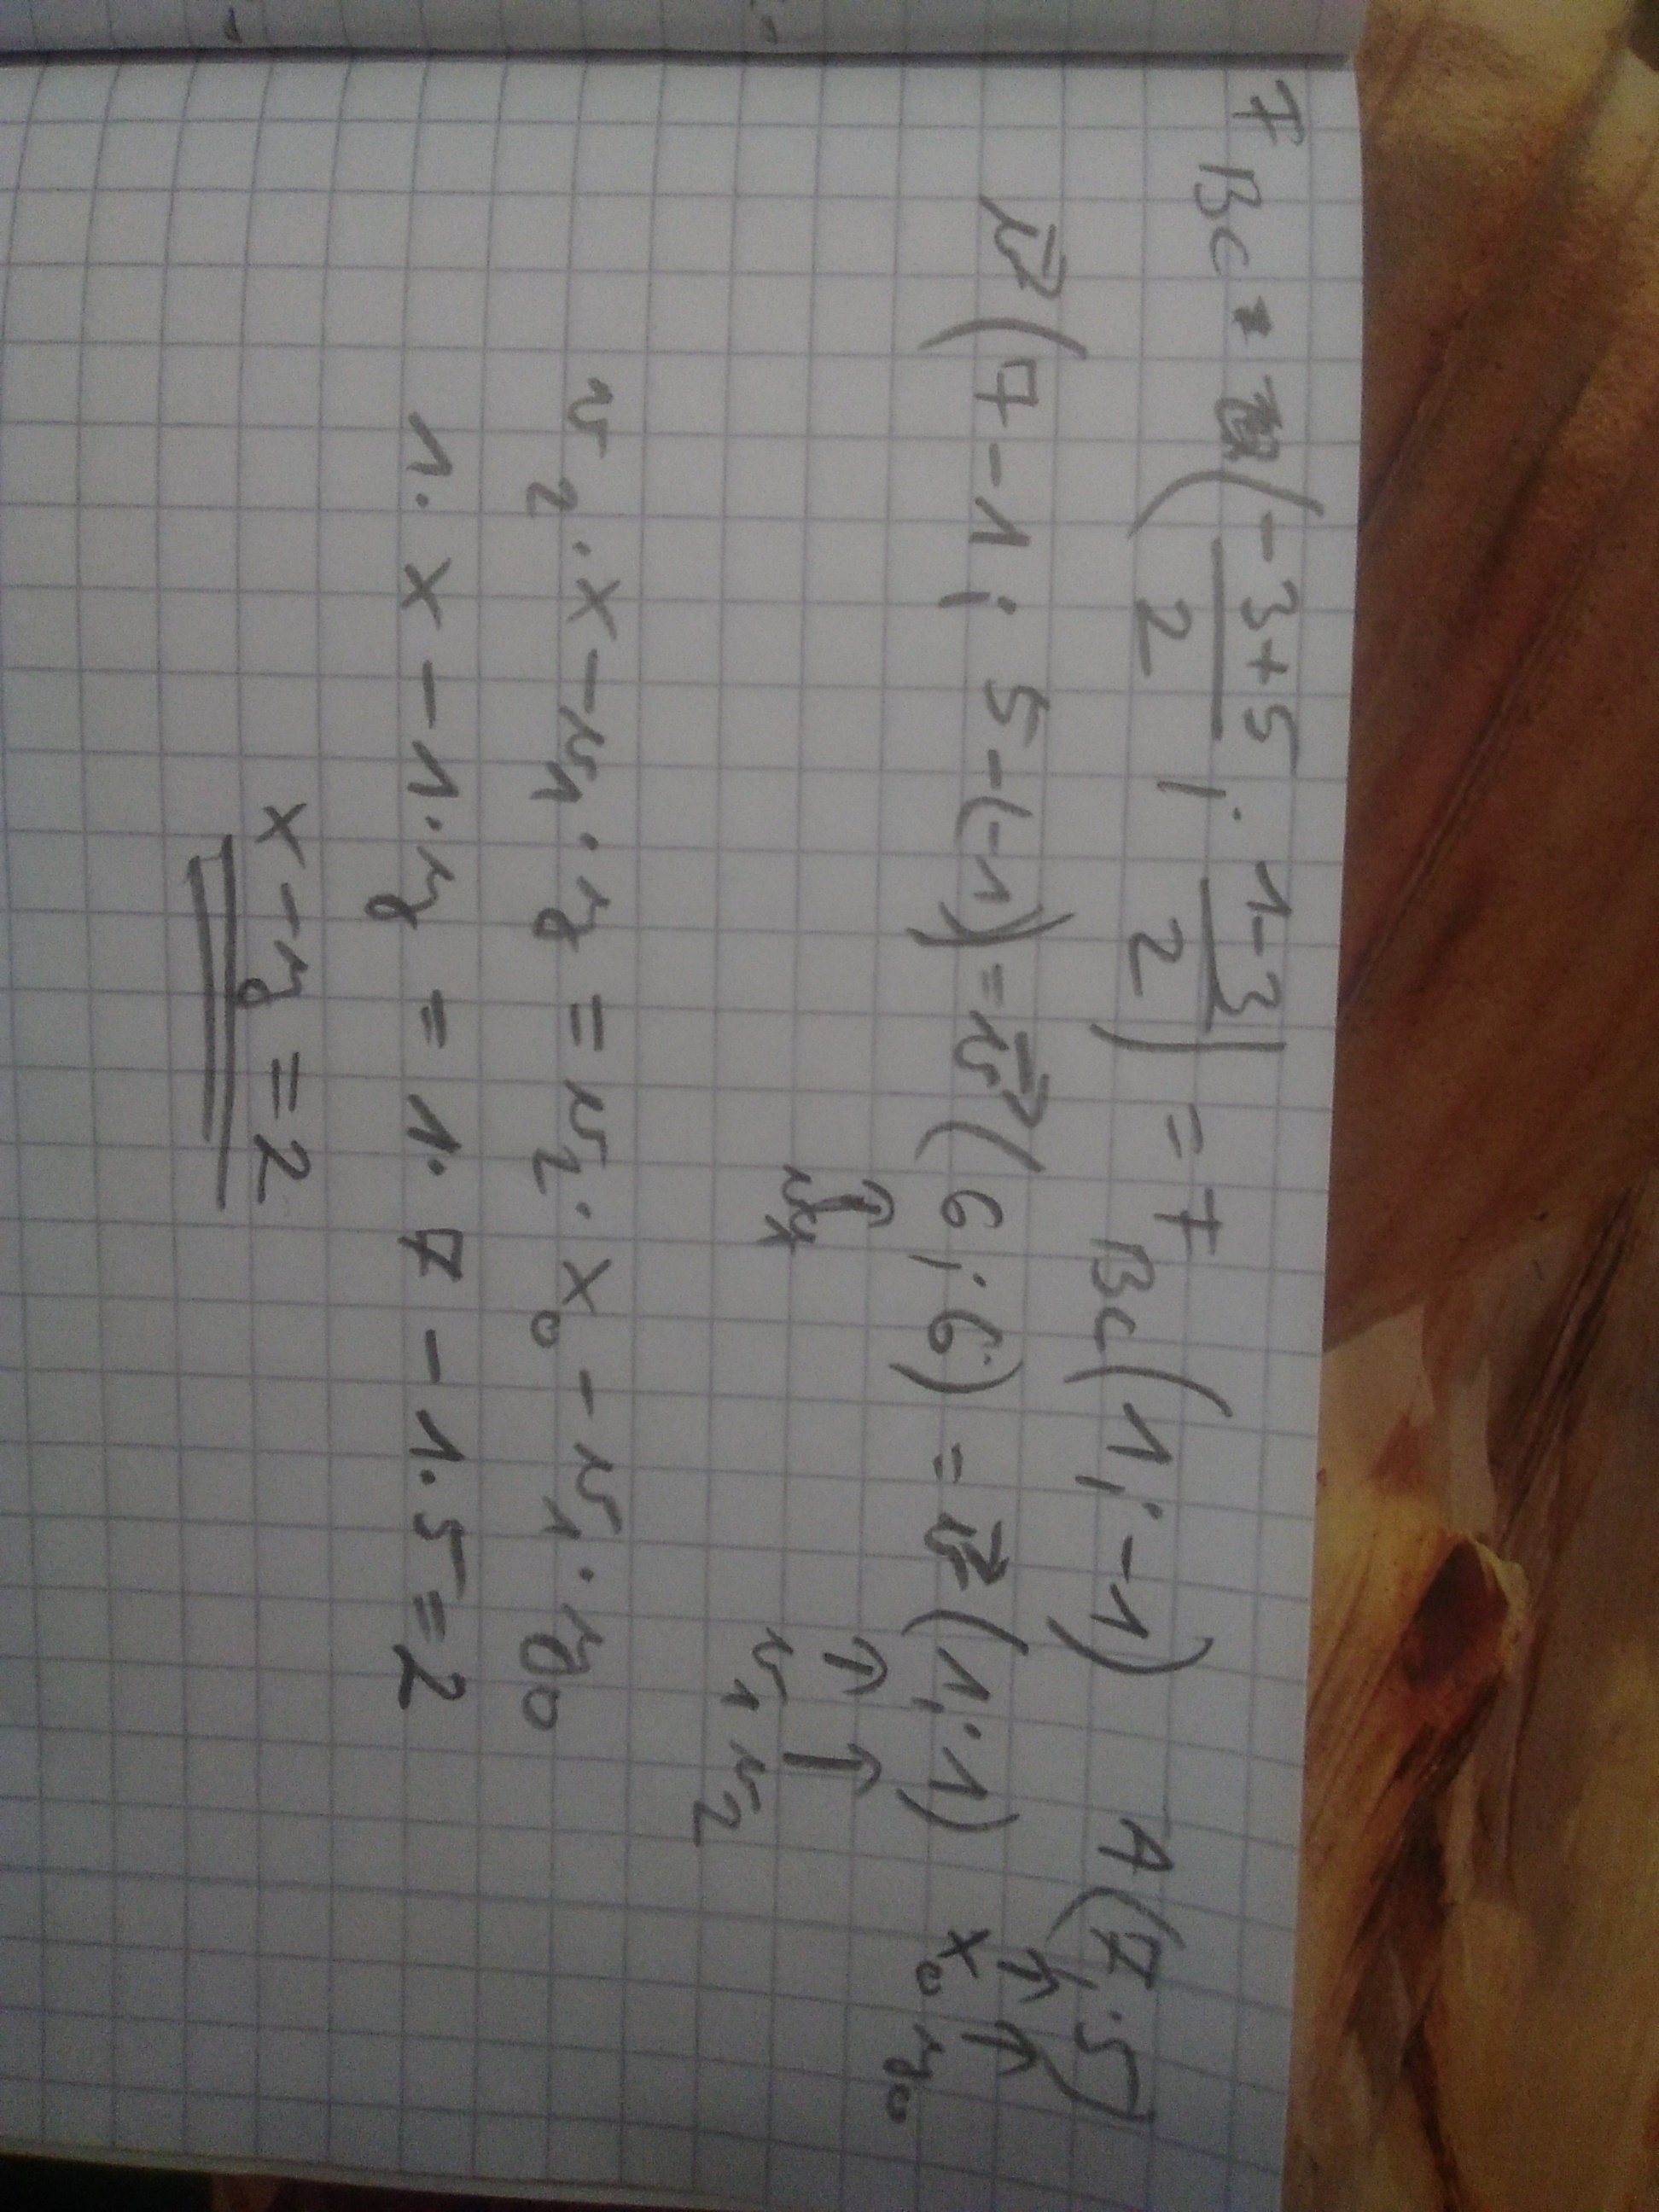 F BC = (-3+5/2 ; 1-3/2) = F BC (1; -1) A(7; 5)
↑ ↑
x₀ y₀
v⃗(7-1; 5-(-1)) = v⃗(6; 6) = v⃗(1; 1)
↑ ↑ ↑
v₁ v₁ v₂
v₂·x - v₁·y = v₂·x₀ - v₁·y₀
1·x - 1·y = 1·7 - 1·5 = 2
x - y = 2